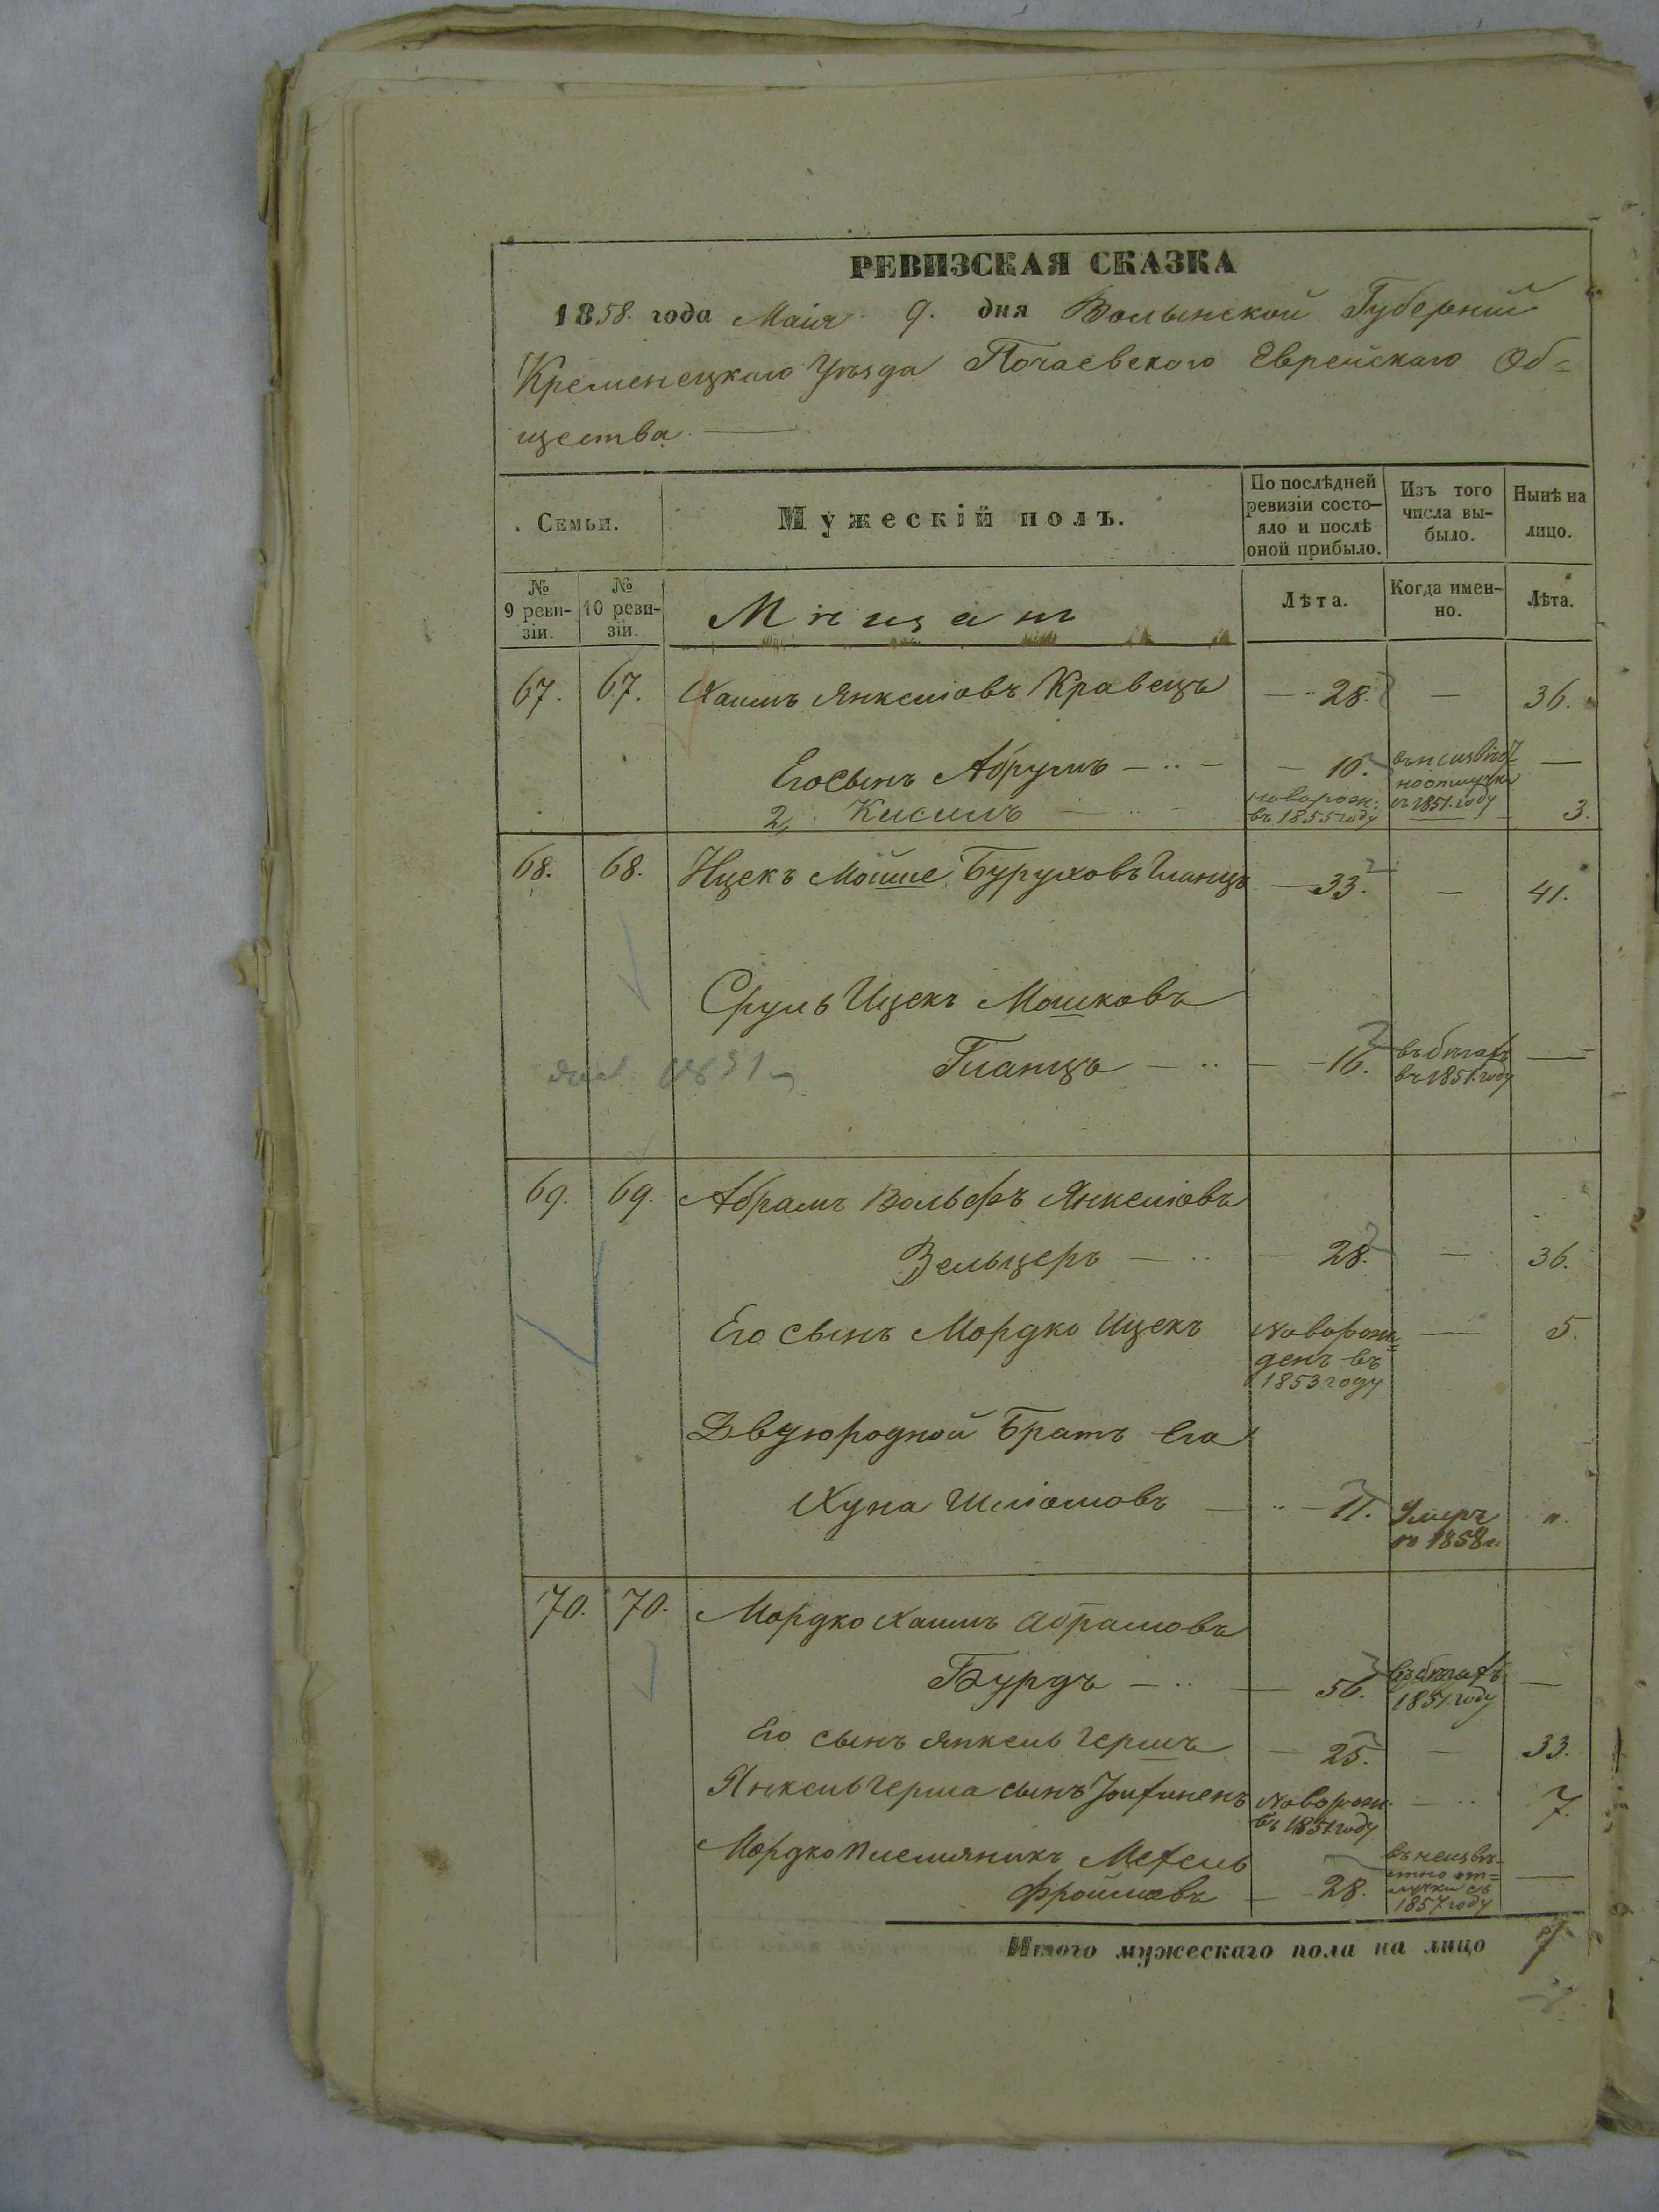 РЕВИЗСКАЯ СКАЗКА
1858. года Маія 9. дня Волынской Губерніи
Кременецкаго Уѣзда Почаевского Еврейскаго Об=
щества.
Семьи.
Мужескій полъ.
По послѣдней ревизіи состо-яло и послѣ оной прибыло.
Изъ того числа вы-было.
Нынѣ на лицо.
№ 9 реви-зіи.
№ 10 реви-зіи.
Мѣщанъ
Лѣта.
Когда имен-но.
Лѣта.
67. 67. Хаимъ Янкелювъ Кравецъ — 28. — 36.
Его сынъ Абрумъ — 10. въ неизвѣст ноотлучкѣ съ 1851. году —
2, Кисилъ новорож: въ 1855 году 3.
68. 68. Ицекъ Мойше Буруховъ Гланцъ — 33. — 41.
Сруль Ицекъ Мошковъ
Гланцъ — 16. въ бѣгахъ въ 1851. году —
69. 69. Абрамъ Вольфъ Янкелювъ
Зельцеръ — 28. — 36.
Его сынъ Мордко Ицекъ Новорож=денъ въ 1853 году — 5.
Двуюродной Братъ Его
Хуна Шліомовъ — 11. Умеръ въ 1858 г. "
70. 70. Мордко Хаимъ Абрамовъ
Бурдъ — 56. въ бѣгахъ 1851. году —
Его сынъ Янкель Гершъ — 25. — 33.
Янкель Герша сынъ Новорож. въ 1851 году — 7.
Мордко племяникъ Мехель
Фроймовъ — 28. въ неизвѣ-стно от=лучки съ 1857 году —
Итого мужескаго пола на лицо 7